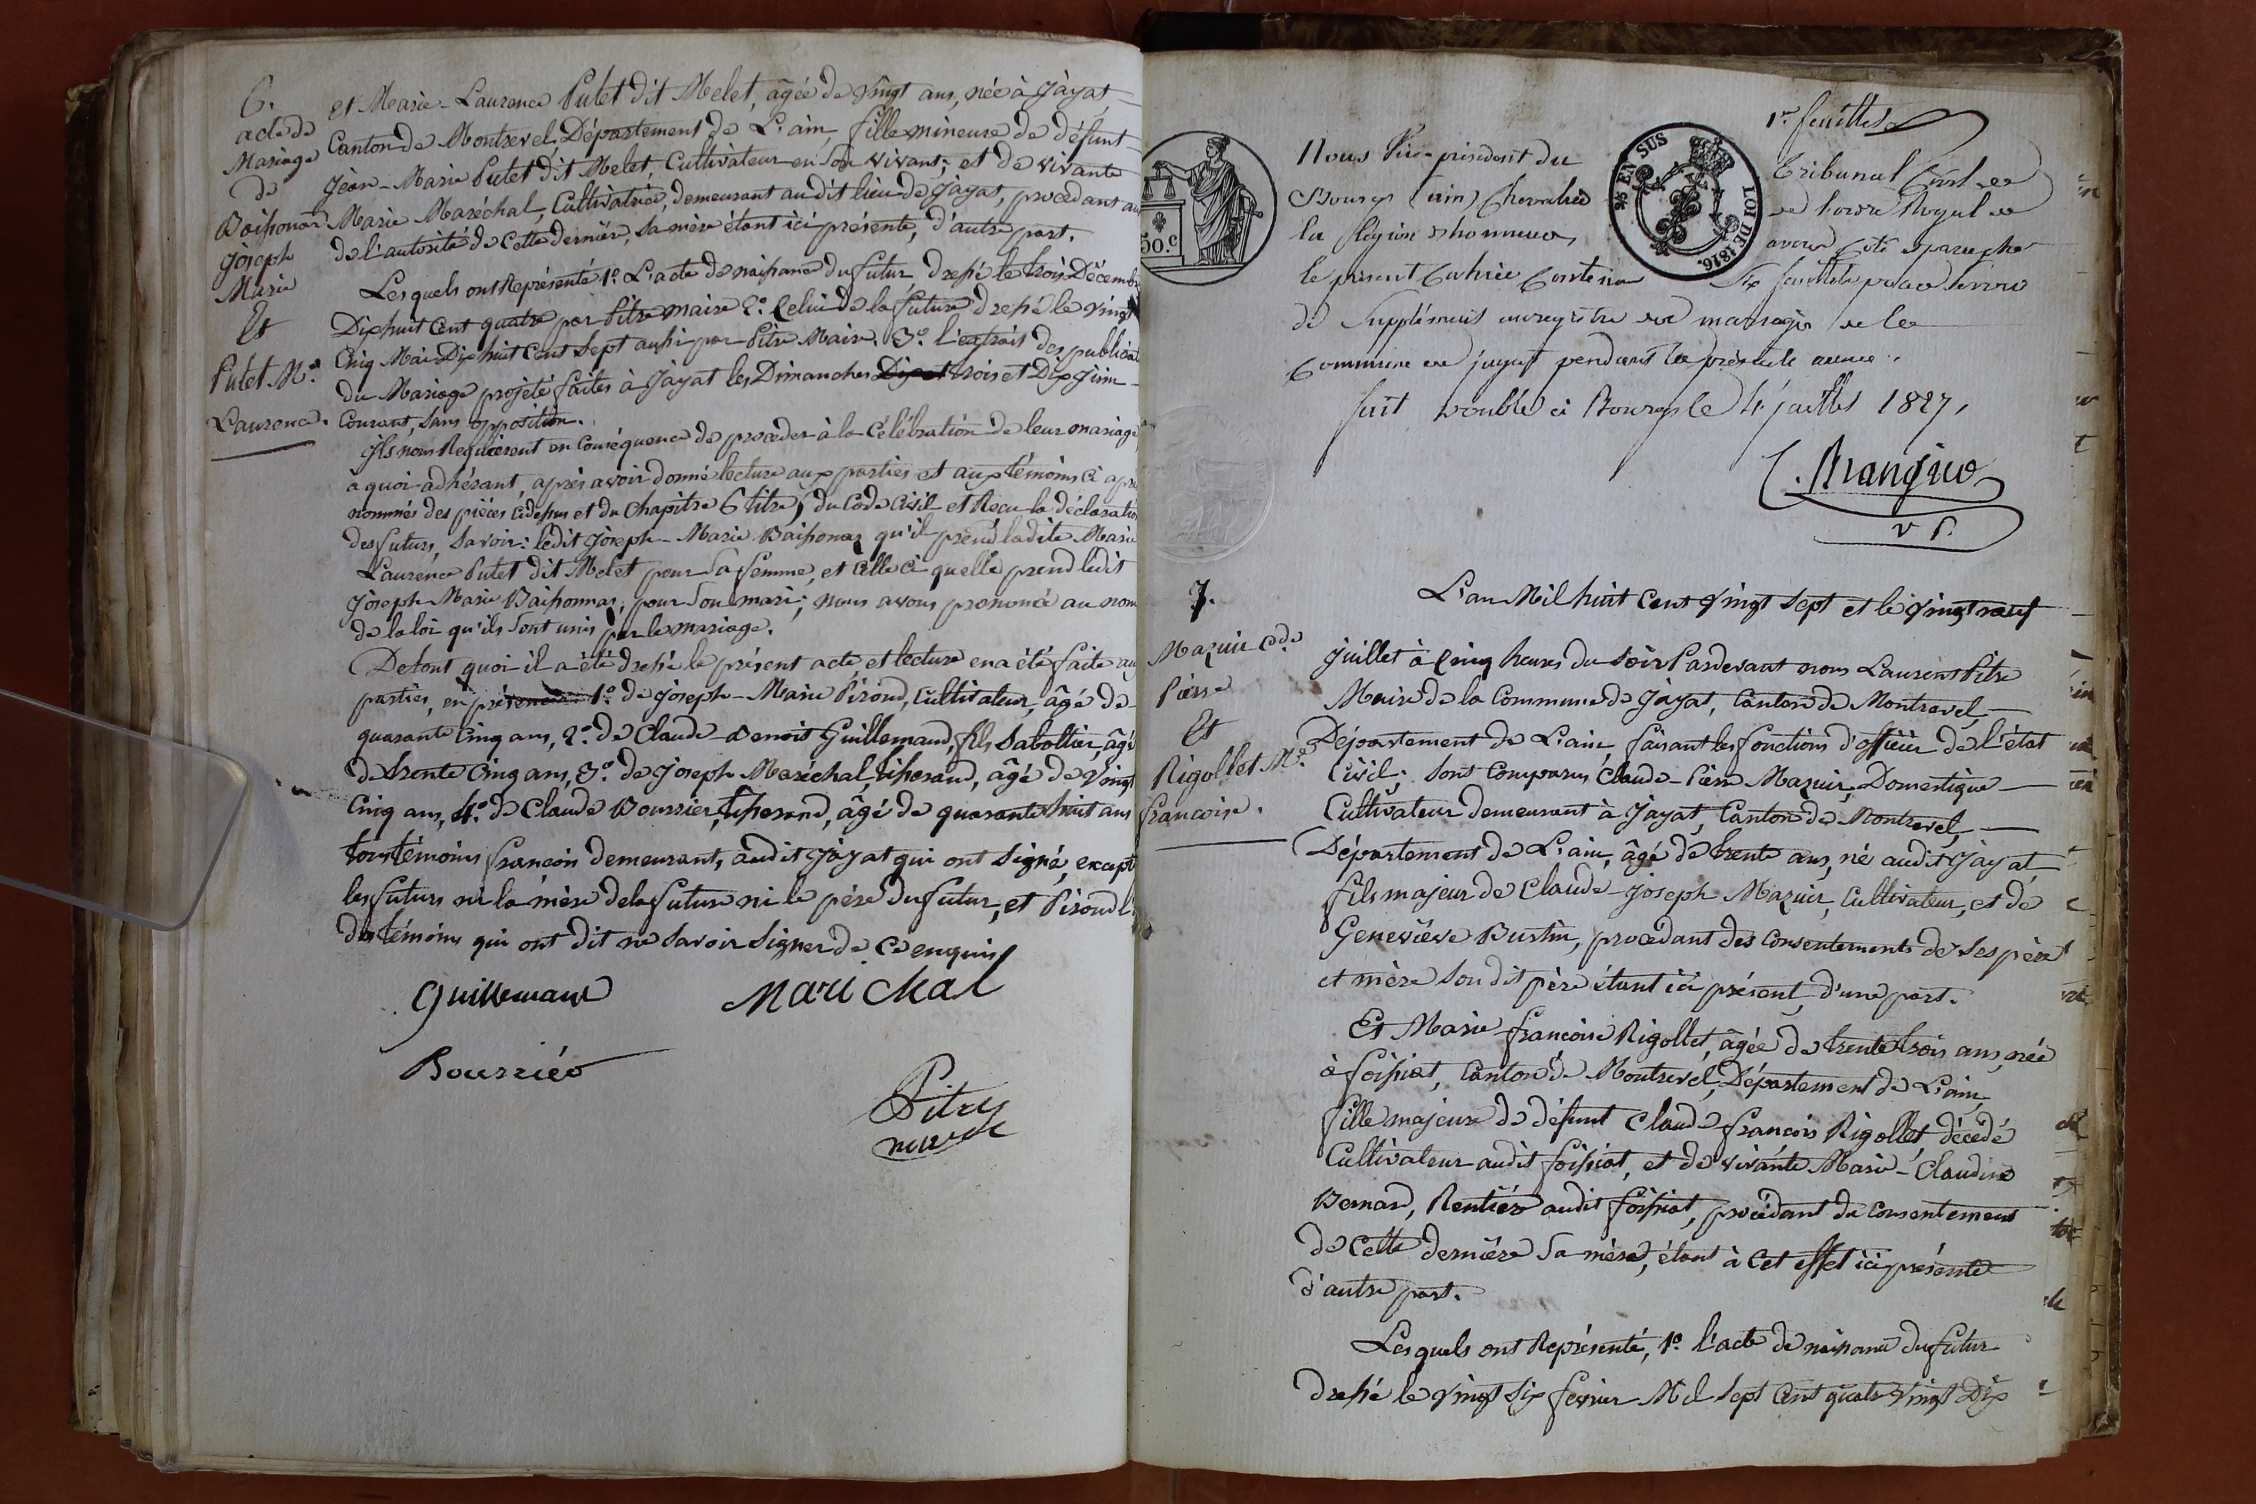 6.
acte de
Mariage
de
Baissonar
Joseph
Marie
Et
Putet Me.
Laurence.
et Marie-Laurence Putet dit Melet, âgée de vingt ans, née à Jayat
Canton de Montrevel, Département de L'ain, fille mineure de défunt
Jéan-Marie Putet dit Melet, Cultivateur en son vivant; et de vivante
Marie Maréchal, Cultivatrice, demeurant audit lieu de Jayat, procédant
de l'autorité de cette dernière, sa mère étant ici présente, d'autre part.
Lesquels ont Représenté 1º. L'acte de naissance du futur dressé le trois Décembre
Dix huit Cent quatre par Pitre maire 2º. Celui de la future dressé le vingt
Cinq Mai Dix huit Cent Sept aussi par Pitre Maire. 3º. l'extrait des publicat
du Mariage projeté faites à Jayat les Dimanches trois et Dix Juin
Courant, sans opposition.
Ils nous Requièrent en Conséquence de procéder à la Célébration de leur mariage
à quoi adhérant, après avoir donné lecture aux parties et aux témoins ci apr
nommés des pièces cidessus et du Chapitre 6 titre 5 du Code Civil et Recu la déclaration
des futurs, Savoir: ledit Joseph-Marie Baissonnas qu'il prend ladite Marie
Laurence Putet dit Melet pour Sa femme, et celle ci quelle prend ledit
Joseph Marie Baissonnas, pour Son mari; nous avons prononcé au nom
de la loi qu'ils sont unis par le mariage.
De tout quoi il a été dressé le présent acte et lecture en a été faite au
parties, en présence 1º. de Joseph-Marie Pirond, Cultivateur, âgé de
quarante Cinq ans, 2º. de Claude-Benoit Guillemaud, fils Sabottier, âgé
de trente Cinq ans, 3º. de Joseph Maréchal, tisserand, âgé de vingt
Cinq ans, 4º. de Claude Bourrier, tisserand, âgé de quarante huit ans
tous témoins françois demeurants audit Jayat qui ont Signé, except
les futurs ni la mère de la future ni le père du futur, et Pirond l'
des témoins qui ont dit ne Savoir Signer de ce enquis
Guillemaud
Mari chal
Bourrier
Pitre
maire
1er. feuillet
50.c
25 EN SUS
LOI DE 1816.
Nous Vice-président du Tribunal Civil de
Bourg (ain) Chevalier de l'ordre Royal de
la légion d'honneur, avons Coté & paraphé
le présent Cahier Contenant Six feuillets pour servir
de Supplément au registre de mariage de la
Commune de Jayat pendant la présente année.
fait double à Bourg le 4 juillet 1827,
vP.
7.
Mazuir Cde.
Pierre
Et
Rigollet Me.
francoise.
L'an Mil huit Cent vingt Sept et le vingt neuf
Juillet à Cinq heures du Soir Pardevant nous Laurent Pitre
Maire de la Commune de Jayat, Canton de Montrevel,
Département de L'ain, faisant les fonctions d'officier de l'état
Civil. Sont Comparus Claude-Pierre Mazuir, Domestique
Cultivateur demeurant à Jayat, Canton de Montrevel,
Département de L'ain, âgé de trente ans, né audit Jayat,
fils majeur de Claude-Joseph Mazuir, Cultivateur, et de
Geneviève Burtin, procédant des Consentements de ses père
et mère Son dit père étant ici présent, d'une part.
Et Marie françoise Rigollet, âgée de trente trois ans, née
à foissiat, Canton de Montrevel, Département de L'ain,
fille majeure de défunt Claude françois Rigollet, décédé
Cultivateur audit foissiat, et de vivante Marie-Claudine
Bernard, Rentière audit foissiat, procédant du Consentement
de cette dernière Sa mère, étant à Cet effet ici présente
d'autre part.
Lesquels ont Représenté, 1º. l'acte de naissance du futur
dressé le vingt Six février Mil Sept Cent quatre vingt Dix